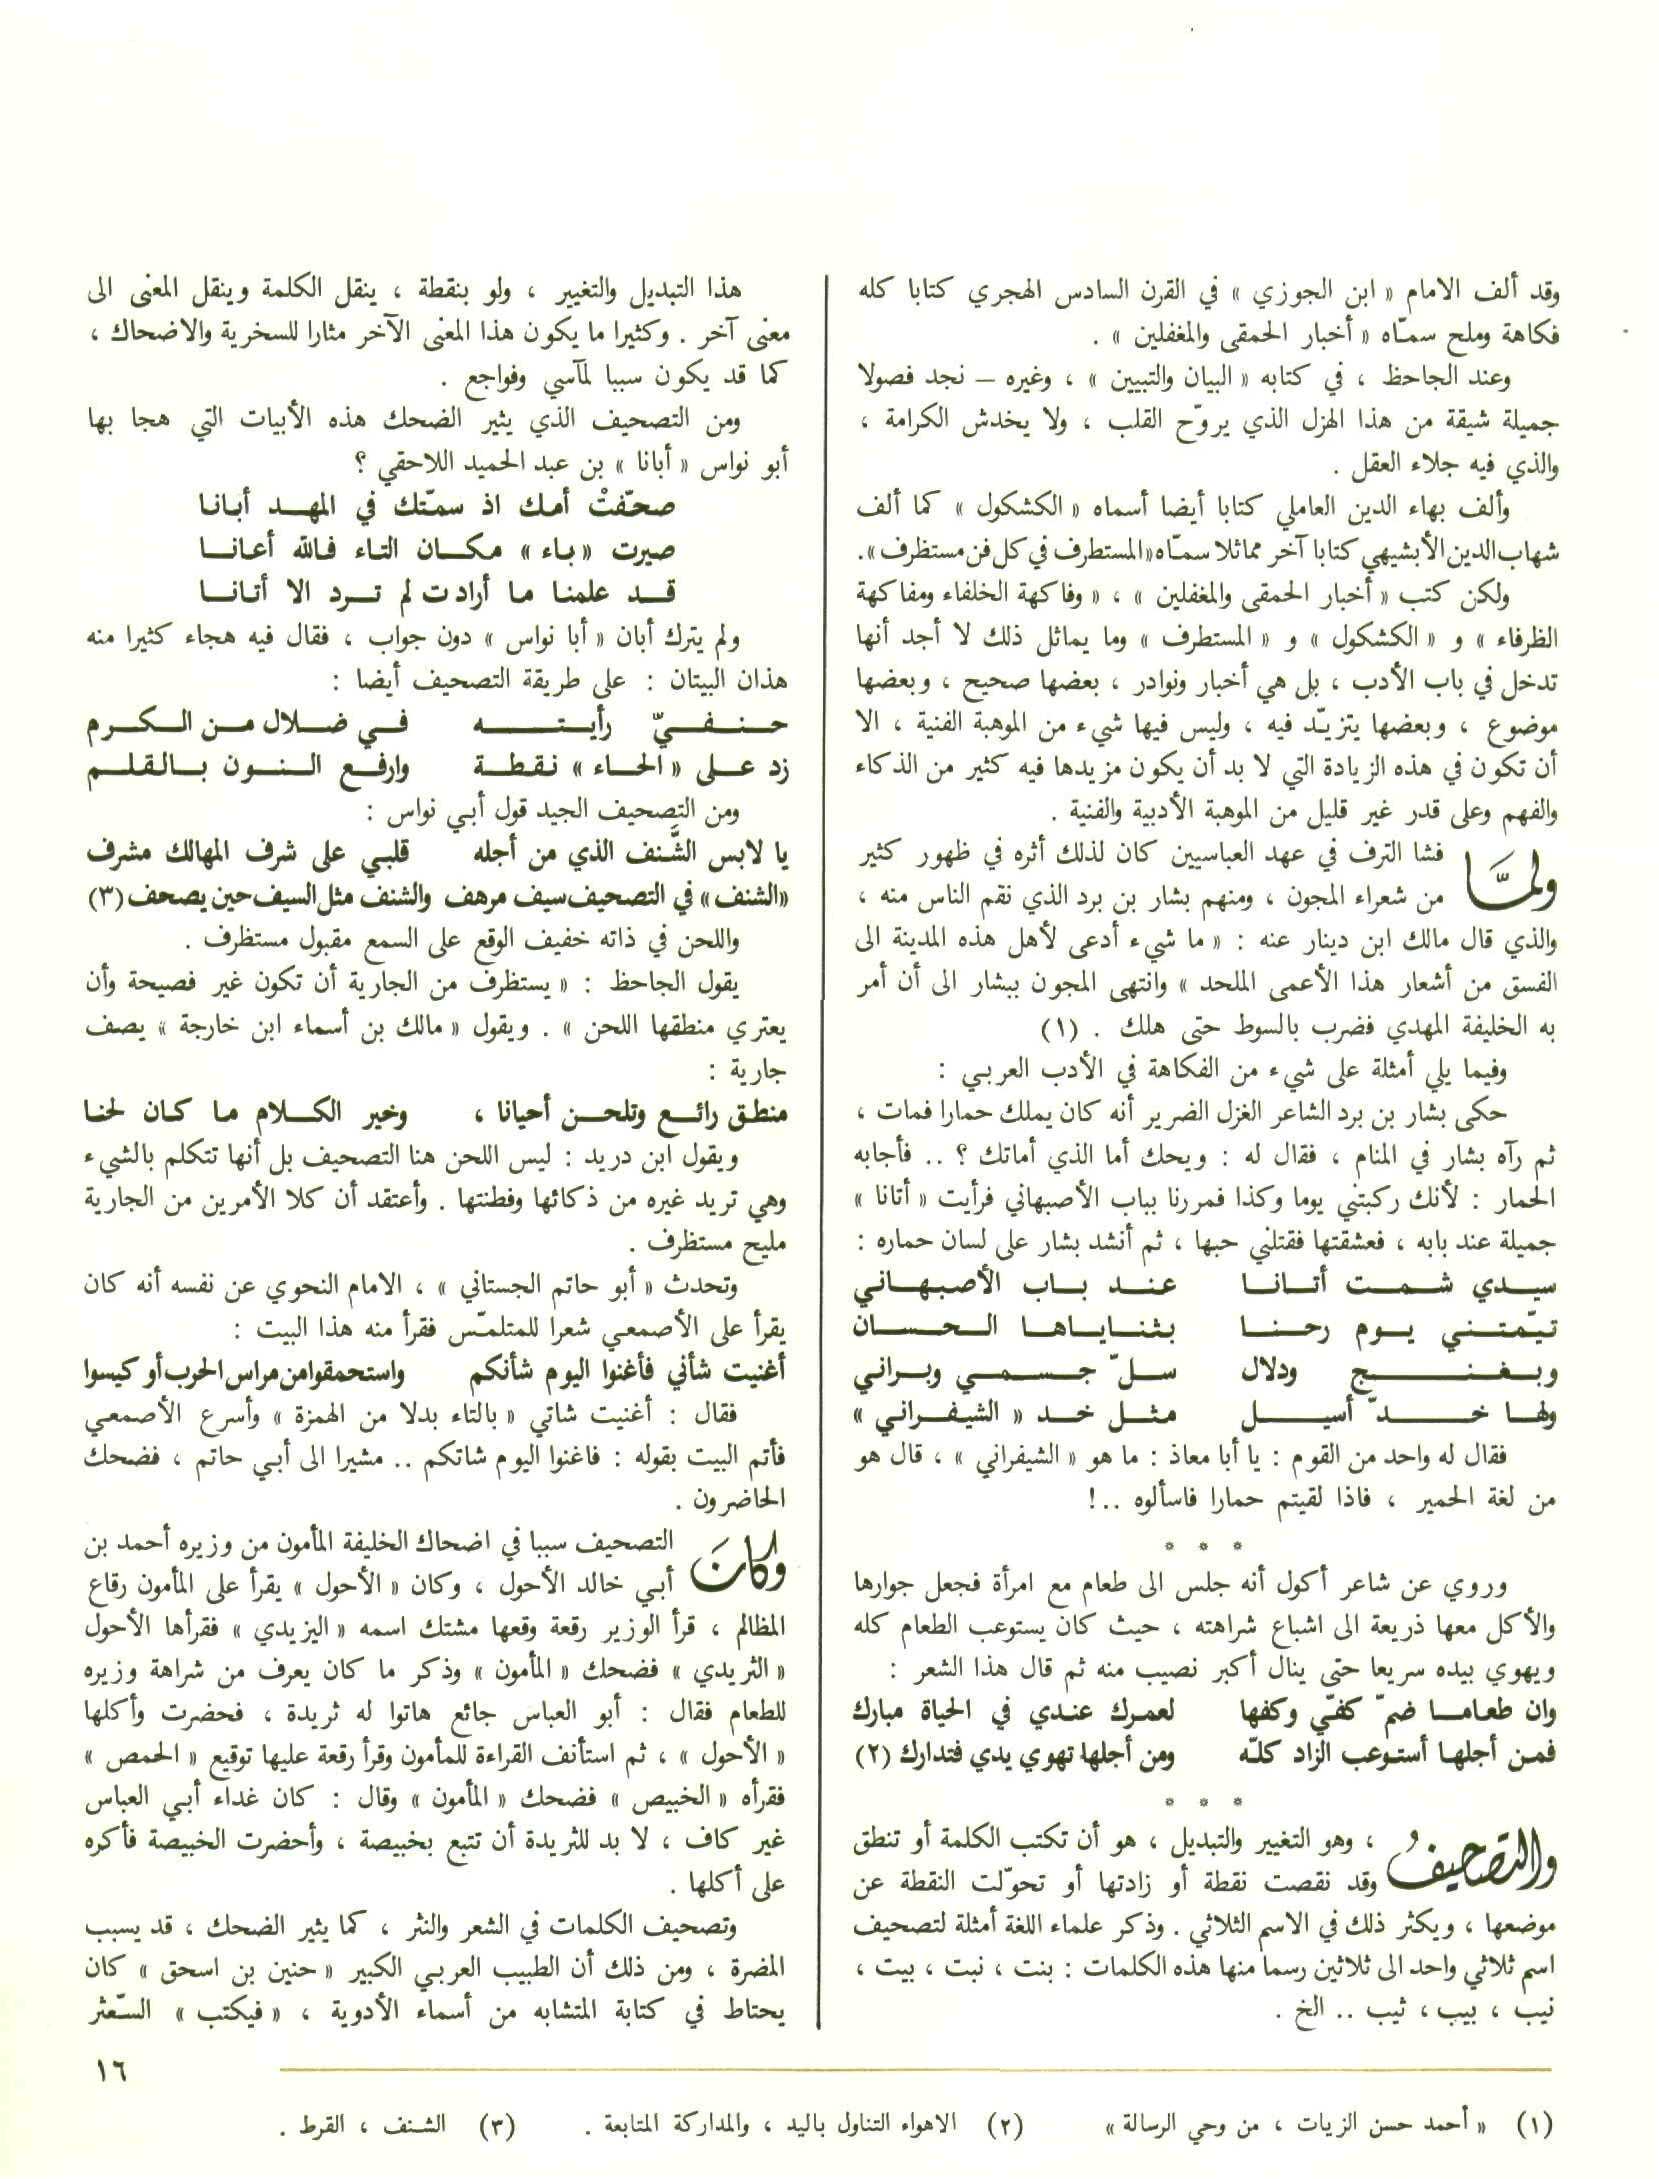 وقد ألف الامام « ابن الجوزي » في القرن السادس الهجري كتابا كله
فكاهة وملح سمّاه « أخبار الحمقى والمغفلين » .
وعند الجاحظ ، في كتابه « البيان والتبيين » ، وغيره – نجد فصولا
جميلة شيقة من هذا الهزل الذي يروّح القلب ، ولا يخدش الكرامة ،
والذي فيه جلاء العقل .
وألف بهاء الدين العاملي كتابا أيضا أسماه « الكشكول » كما ألف
شهاب الدين الأبشيهي كتابا آخر مماثلا سمّاه «المستطرف في كل فن مستظرف».
ولكن كتب « أخبار الحمقى والمغفلين » ، « وفاكهة الخلفاء ومفاكهة
الظرفاء » و « الكشكول » و « المستطرف » وما يماثل ذلك لا أجد أنها
تدخل في باب الأدب ، بل هي أخبار ونوادر ، بعضها صحيح ، وبعضها
موضوع ، وبعضها يتزيّد فيه ، وليس فيها شيء من الموهبة الفنية ، الا
أن تكون في هذه الزيادة التي لا بد أن يكون مزيدها فيه كثير من الذكاء
والفهم وعلى قدر غير قليل من الموهبة الأدبية والفنية .
ولمَّا فشا الترف في عهد العباسيين كان لذلك أثره في ظهور كثير
من شعراء المجون ، ومنهم بشار بن برد الذي نقم الناس منه ،
والذي قال مالك ابن دينار عنه : « ما شيء أدعى لأهل هذه المدينة الى
الفسق من أشعار هذا الأعمى الملحد » وانتهى المجون ببشار الى أن أمر
به الخليفة المهدي فضرب بالسوط حتى هلك . (١)
وفيما يلي أمثلة على شيء من الفكاهة في الأدب العربي :
حكى بشار بن برد الشاعر الغزل الضرير أنه كان يملك حمارا فمات ،
ثم رآه بشار في المنام ، فقال له : ويحك أما الذي أماتك ؟ .. فأجابه
الحمار : لأنك ركبتني يوما وكذا فمررنا بباب الأصبهاني فرأيت « أتانا »
جميلة عند بابه ، فعشقتها فقتلني حبها ، ثم أنشد بشار على لسان حماره :
سيدي شمت أتانا عند باب الأصبهاني
تيّمتني يوم رحنا بثناياها الحسان
وبغنج ودلال سلّ جسمي وبراني
ولها خدّ أسيل مثل خد « الشيفراني »
فقال له واحد من القوم : يا أبا معاذ : ما هو « الشيفراني » ، قال هو
من لغة الحمير ، فاذا لقيتم حمارا فاسألوه ..!
* * *
وروي عن شاعر أكول أنه جلس الى طعام مع امرأة فجعل جوارها
والأكل معها ذريعة الى اشباع شراهته ، حيث كان يستوعب الطعام كله
ويهوي بيده سريعا حتى ينال أكبر نصيب منه ثم قال هذا الشعر :
وان طعاما ضمّ كفّي وكفها لعمرك عندي في الحياة مبارك
فمن أجلها أستوعب الزاد كلّه ومن أجلها تهوي يدي فتدارك (٢)
* * *
والتصحيفُ ، وهو التغيير والتبديل ، هو أن تكتب الكلمة أو تنطق
وقد نقصت نقطة أو زادتها أو تحوّلت النقطة عن
موضعها ، ويكثر ذلك في الاسم الثلاثي . وذكر علماء اللغة أمثلة لتصحيف
اسم ثلاثي واحد الى ثلاثين رسما منها هذه الكلمات : بنت ، نبت ، بيت ،
نيب ، بيب ، ثيب .. الخ .
هذا التبديل والتغيير ، ولو بنقطة ، ينقل الكلمة وينقل المعنى الى
معنى آخر . وكثيرا ما يكون هذا المعنى الآخر مثارا للسخرية والاضحاك ،
كما قد يكون سببا لمآسي وفواجع .
ومن التصحيف الذي يثير الضحك هذه الأبيات التي هجا بها
أبو نواس « أبانا » بن عبد الحميد اللاحقي ؟
صحّفتْ أمك اذ سمّتك في المهد أبانا
صيرت «باء» مكان التاء فالله أعانا
قد علمنا ما أرادت لم ترد الا أتانا
ولم يترك أبان « أبا نواس » دون جواب ، فقال فيه هجاء كثيرا منه
هذان البيتان : على طريقة التصحيف أيضا :
حنفيّ رأيته في ضلال من الكرم
زد على « الحاء » نقطة وارفع النون بالقلم
ومن التصحيف الجيد قول أبي نواس :
يا لابس الشَّنف الذي من أجله قلبي على شرف المهالك مشرف
«الشنف» في التصحيف سيف مرهف والشنف مثل السيف حين يصحف (٣)
واللحن في ذاته خفيف الوقع على السمع مقبول مستظرف .
يقول الجاحظ : « يستظرف من الجارية أن تكون غير فصيحة وأن
يعتري منطقها اللحن » . ويقول « مالك بن أسماء ابن خارجة » يصف
جارية :
منطق رائع وتلحن أحيانا ، وخير الكلام ما كان لحنا
ويقول ابن دريد : ليس اللحن هنا التصحيف بل أنها تتكلم بالشيء
وهي تريد غيره من ذكائها وفطنتها . وأعتقد أن كلا الأمرين من الجارية
مليح مستظرف .
وتحدث « أبو حاتم الجستاني » ، الامام النحوي عن نفسه أنه كان
يقرأ على الأصمعي شعرا للمتلمّس فقرأ منه هذا البيت :
أغنيت شأني فأغنوا اليوم شأنكم واستحمقوا من مراس الحرب أو كيسوا
فقال : أغنيت شاتي « بالتاء بدلا من الهمزة » وأسرع الأصمعي
فأتم البيت بقوله : فاغنوا اليوم شاتكم .. مشيرا الى أبي حاتم ، فضحك
الحاضرون .
وكانَ التصحيف سببا في اضحاك الخليفة المأمون من وزيره أحمد بن
أبي خالد الأحول ، وكان « الأحول » يقرأ على المأمون رقاع
المظالم ، قرأ الوزير رقعة وقعها مشتك اسمه « اليزيدي » فقرأها الأحول
« الثريدي » فضحك « المأمون » وذكر ما كان يعرف من شراهة وزيره
للطعام فقال : أبو العباس جائع هاتوا له ثريدة ، فحضرت وأكلها
« الأحول » ، ثم استأنف القراءة للمأمون وقرأ رقعة عليها توقيع « الحمص »
فقرأه « الخبيص » فضحك « المأمون » وقال : كان غداء أبي العباس
غير كاف ، لا بد للثريدة أن تتبع بخبيصة ، وأحضرت الخبيصة فأكره
على أكلها .
وتصحيف الكلمات في الشعر والنثر ، كما يثير الضحك ، قد يسبب
المضرة ، ومن ذلك أن الطبيب العربي الكبير « حنين بن اسحق » كان
يحتاط في كتابة المتشابه من أسماء الأدوية ، « فيكتب » السّعثر
١٦
(١) « أحمد حسن الزيات ، من وحي الرسالة » (٢) الاهواء التناول باليد ، والمداركة المتابعة . (٣) الشنف ، القرط .